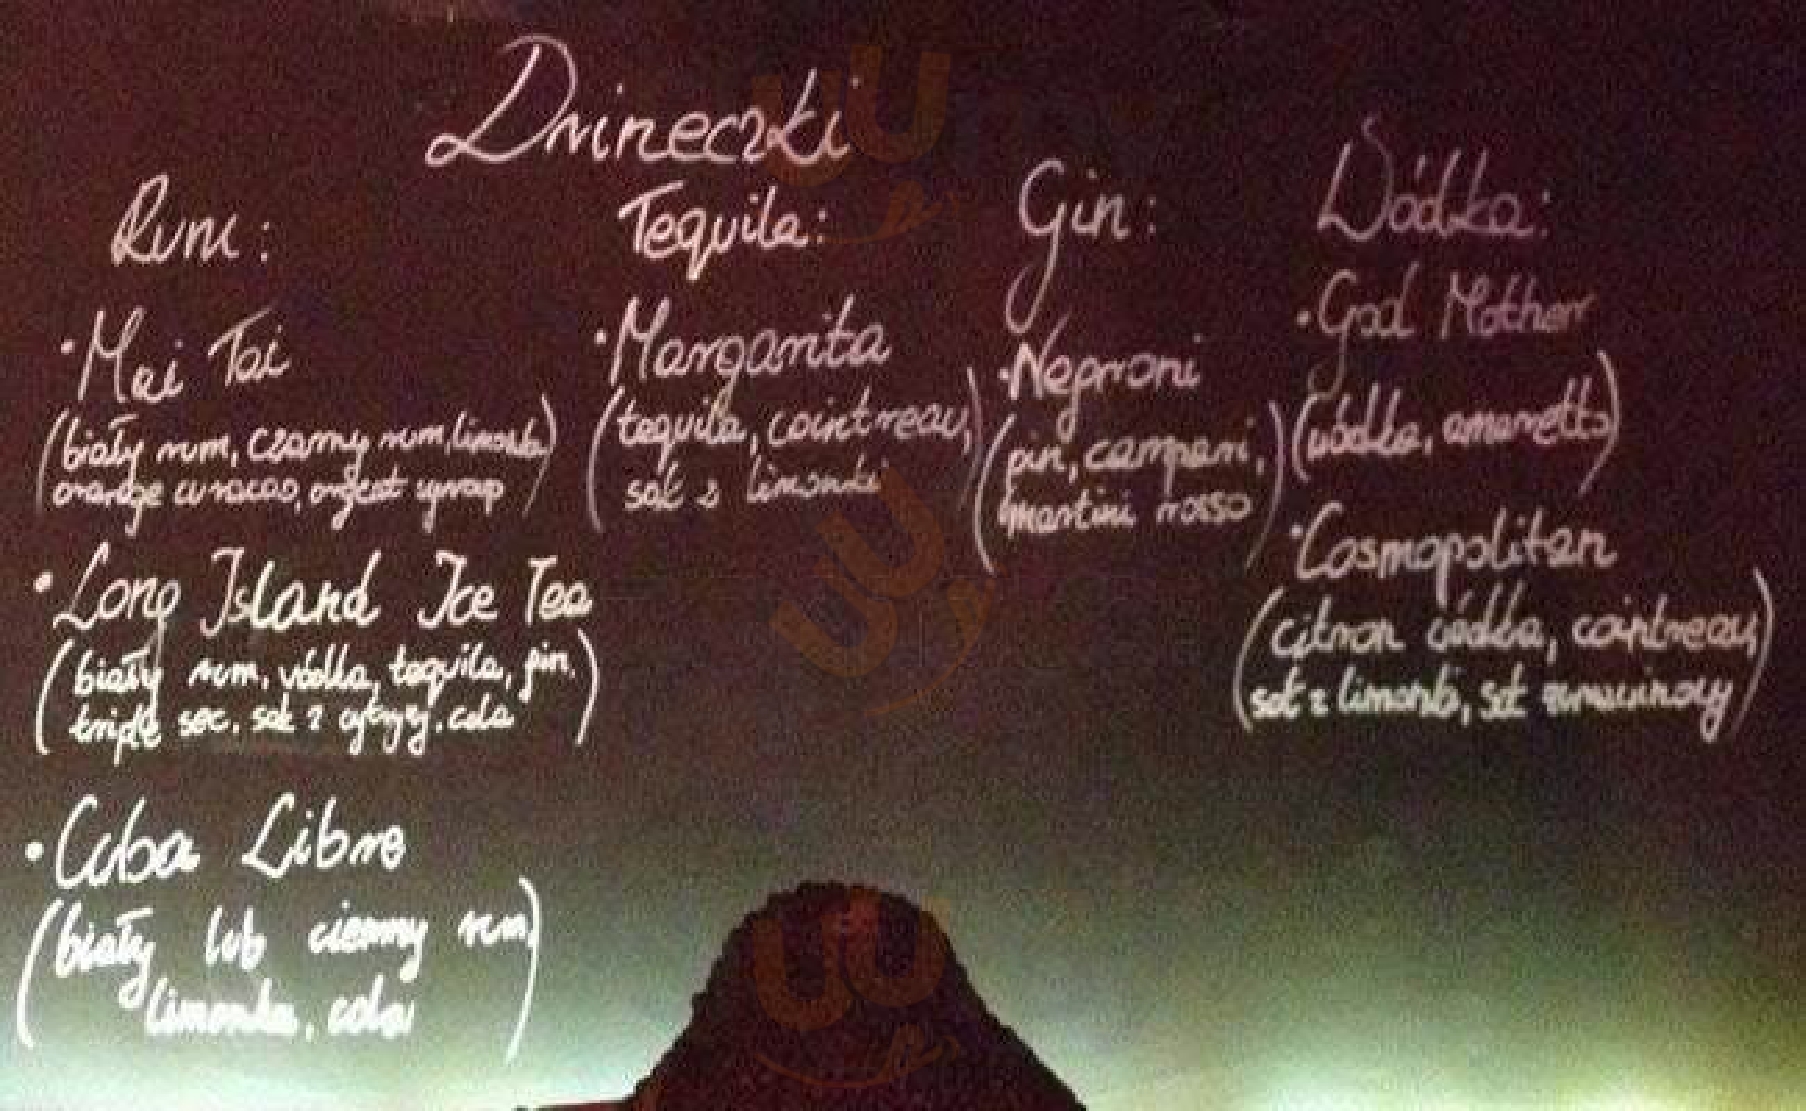 Drineczki
Rum:
• Mai Tai
(biały rum, czarny rum, limonka
orange curacao, orgeat syrop)
• Long Island Ice Tea
(biały rum, vódka, tequila, gin,
triple sec, sok z cytryny, cola)
• Cuba Libre
(biały lub ciemny rum,
limonka, cola)
Tequila:
• Margarita
(tequila, cointreau,
sok z limonki)
Gin:
• Negroni
(gin, campari,
martini rosso)
Wódka:
• God Mother
(wódka, amaretto)
• Cosmopolitan
(citron wódka, cointreau,
sok z limonki, sok żurawinowy)